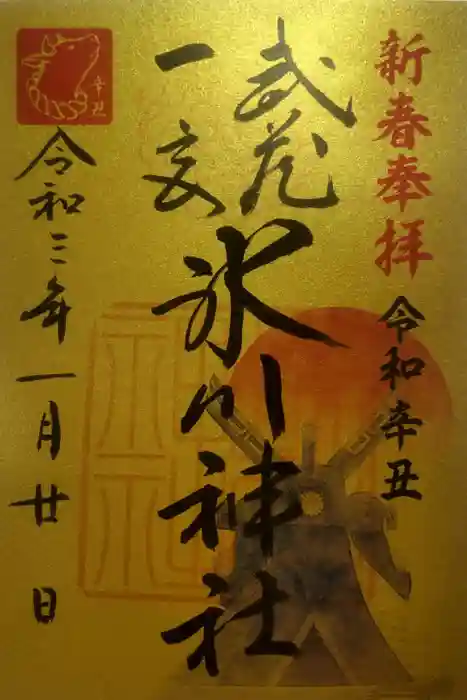 新春奉拝 令和辛丑
武蔵
一宮
氷川神社
令和三年一月廿日
辛丑